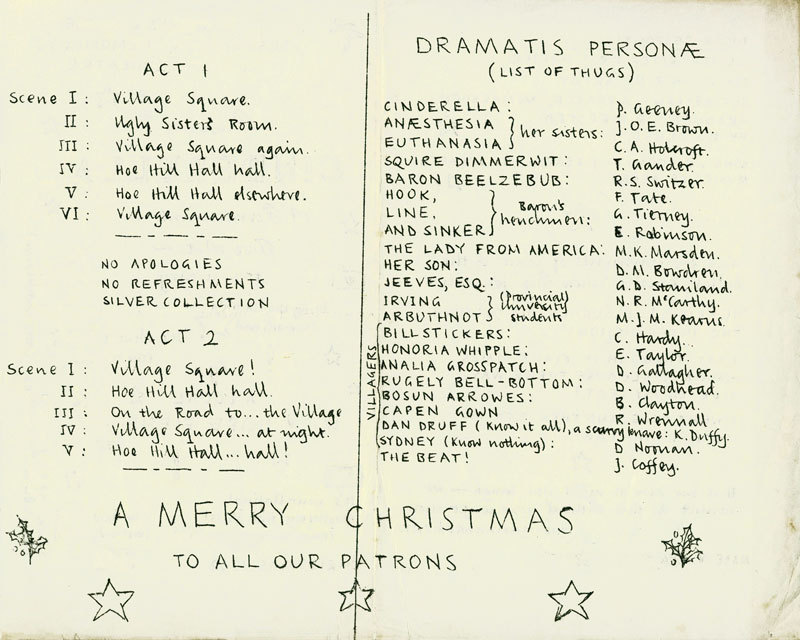 ACT 1
Scene I: Village Square.
II: Ugly Sisters' Room.
III: Village Square again.
IV: Hoe Hill Hall hall.
V: Hoe Hill Hall elsewhere.
VI: Village Square.
NO APOLOGIES
NO REFRESHMENTS
SILVER COLLECTION
ACT 2
Scene I: Village Square!
II: Hoe Hill Hall hall.
III: On the Road to... the Village
IV: Village Square... at night.
V: Hoe Hill Hall... hall!
DRAMATIS PERSONÆ
(LIST OF THUGS)
CINDERELLA: P. Geeney.
ANÆSTHESIA } her sisters: J.O.E. Brown.
EUTHANASIA } C.A. Holcroft.
SQUIRE DIMMERWIT: T. Gander.
BARON BEELZEBUB: R.S. Switzer.
HOOK, } Baron's henchmen: F. Tate.
LINE, G. Tierney.
AND SINKER E. Robinson.
THE LADY FROM AMERICA: M.K. Marsden.
HER SON: D.M. Bowdren.
JEEVES, ESQ.: G.D. Staniland.
IRVING } (Provincial) University students N.R. McCarthy.
ARBUTHNOT M.J.M. Kearns.
VILLAGERS
BILLSTICKERS: C. Hardy.
HONORIA WHIPPLE: E. Taylor.
ANALIA GROSSPATCH: D. Gallagher.
RUGELY BELL-BOTTOM: D. Woodhead.
BOSUN ARROWES: B. Clayton.
CAPEN GOWN R. Wrennall
DAN DRUFF (Know it all), a scurvy knave: K. Duffy.
SYDNEY (Know nothing): D Noonan.
THE BEAT! J. Coffey.
A MERRY CHRISTMAS
TO ALL OUR PATRONS